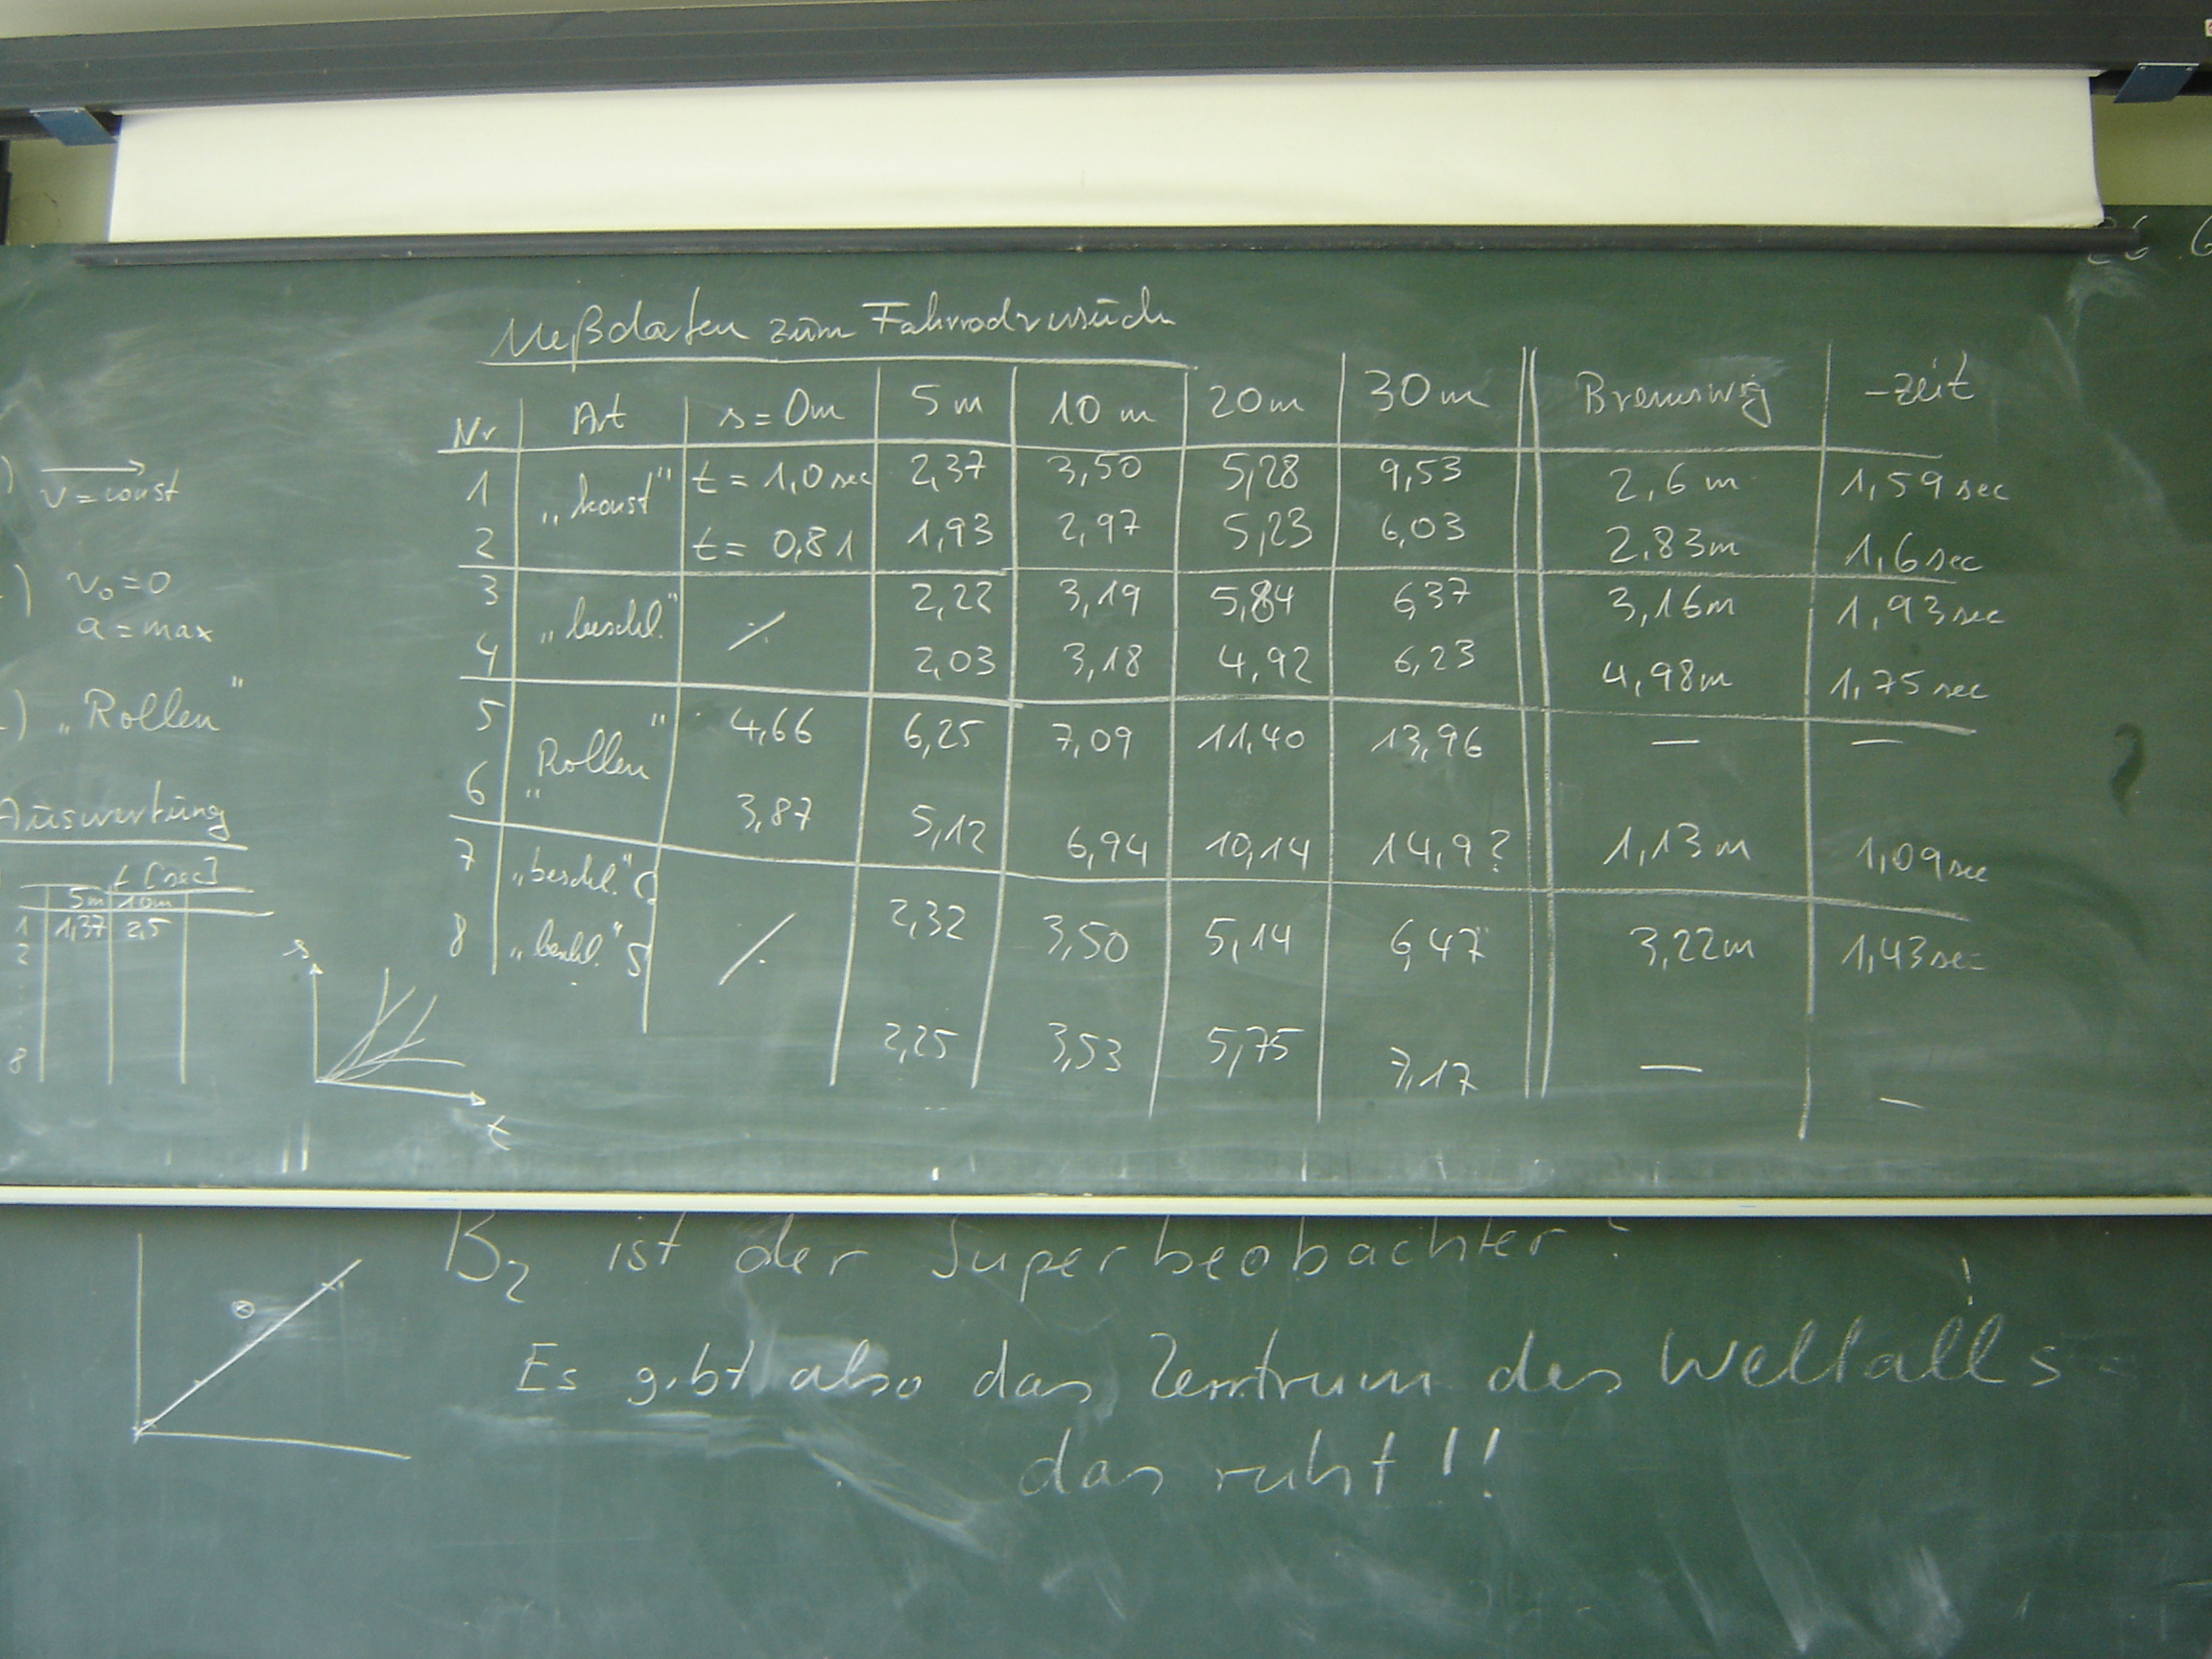 26.6
Meßdaten zum Fahrradversuch
Nr Art s=0m 5m 10m 20m 30m Bremsweg -zeit
1 „konst" t=1,0sec 2,37 3,50 5,28 9,53 2,6m 1,59sec
2 t=0,81 1,93 2,97 5,23 6,03 2,83m 1,6sec
3 „beschl." ⁒ 2,22 3,19 5,84 6,37 3,16m 1,93sec
4 2,03 3,18 4,92 6,23 4,98m 1,75sec
5 „Rollen" 4,66 6,25 7,09 11,40 13,96 — —
6 3,87 5,12 6,94 10,14 14,9? 1,13m 1,09sec
7 „beschl." ⁒ 2,32 3,50 5,14 6,47 3,22m 1,43sec
8 „beschl." 5 2,25 3,53 5,75 7,17 — —
) v=const
) v₀=0
a=max
) „Rollen"
Auswertung
t [sec]
5m 10m
1 1,37 2,5
2
8
s
t
?
B₂ ist der Superbeobachter!
Es gibt also das Zentrum des Weltalls
das ruht!!